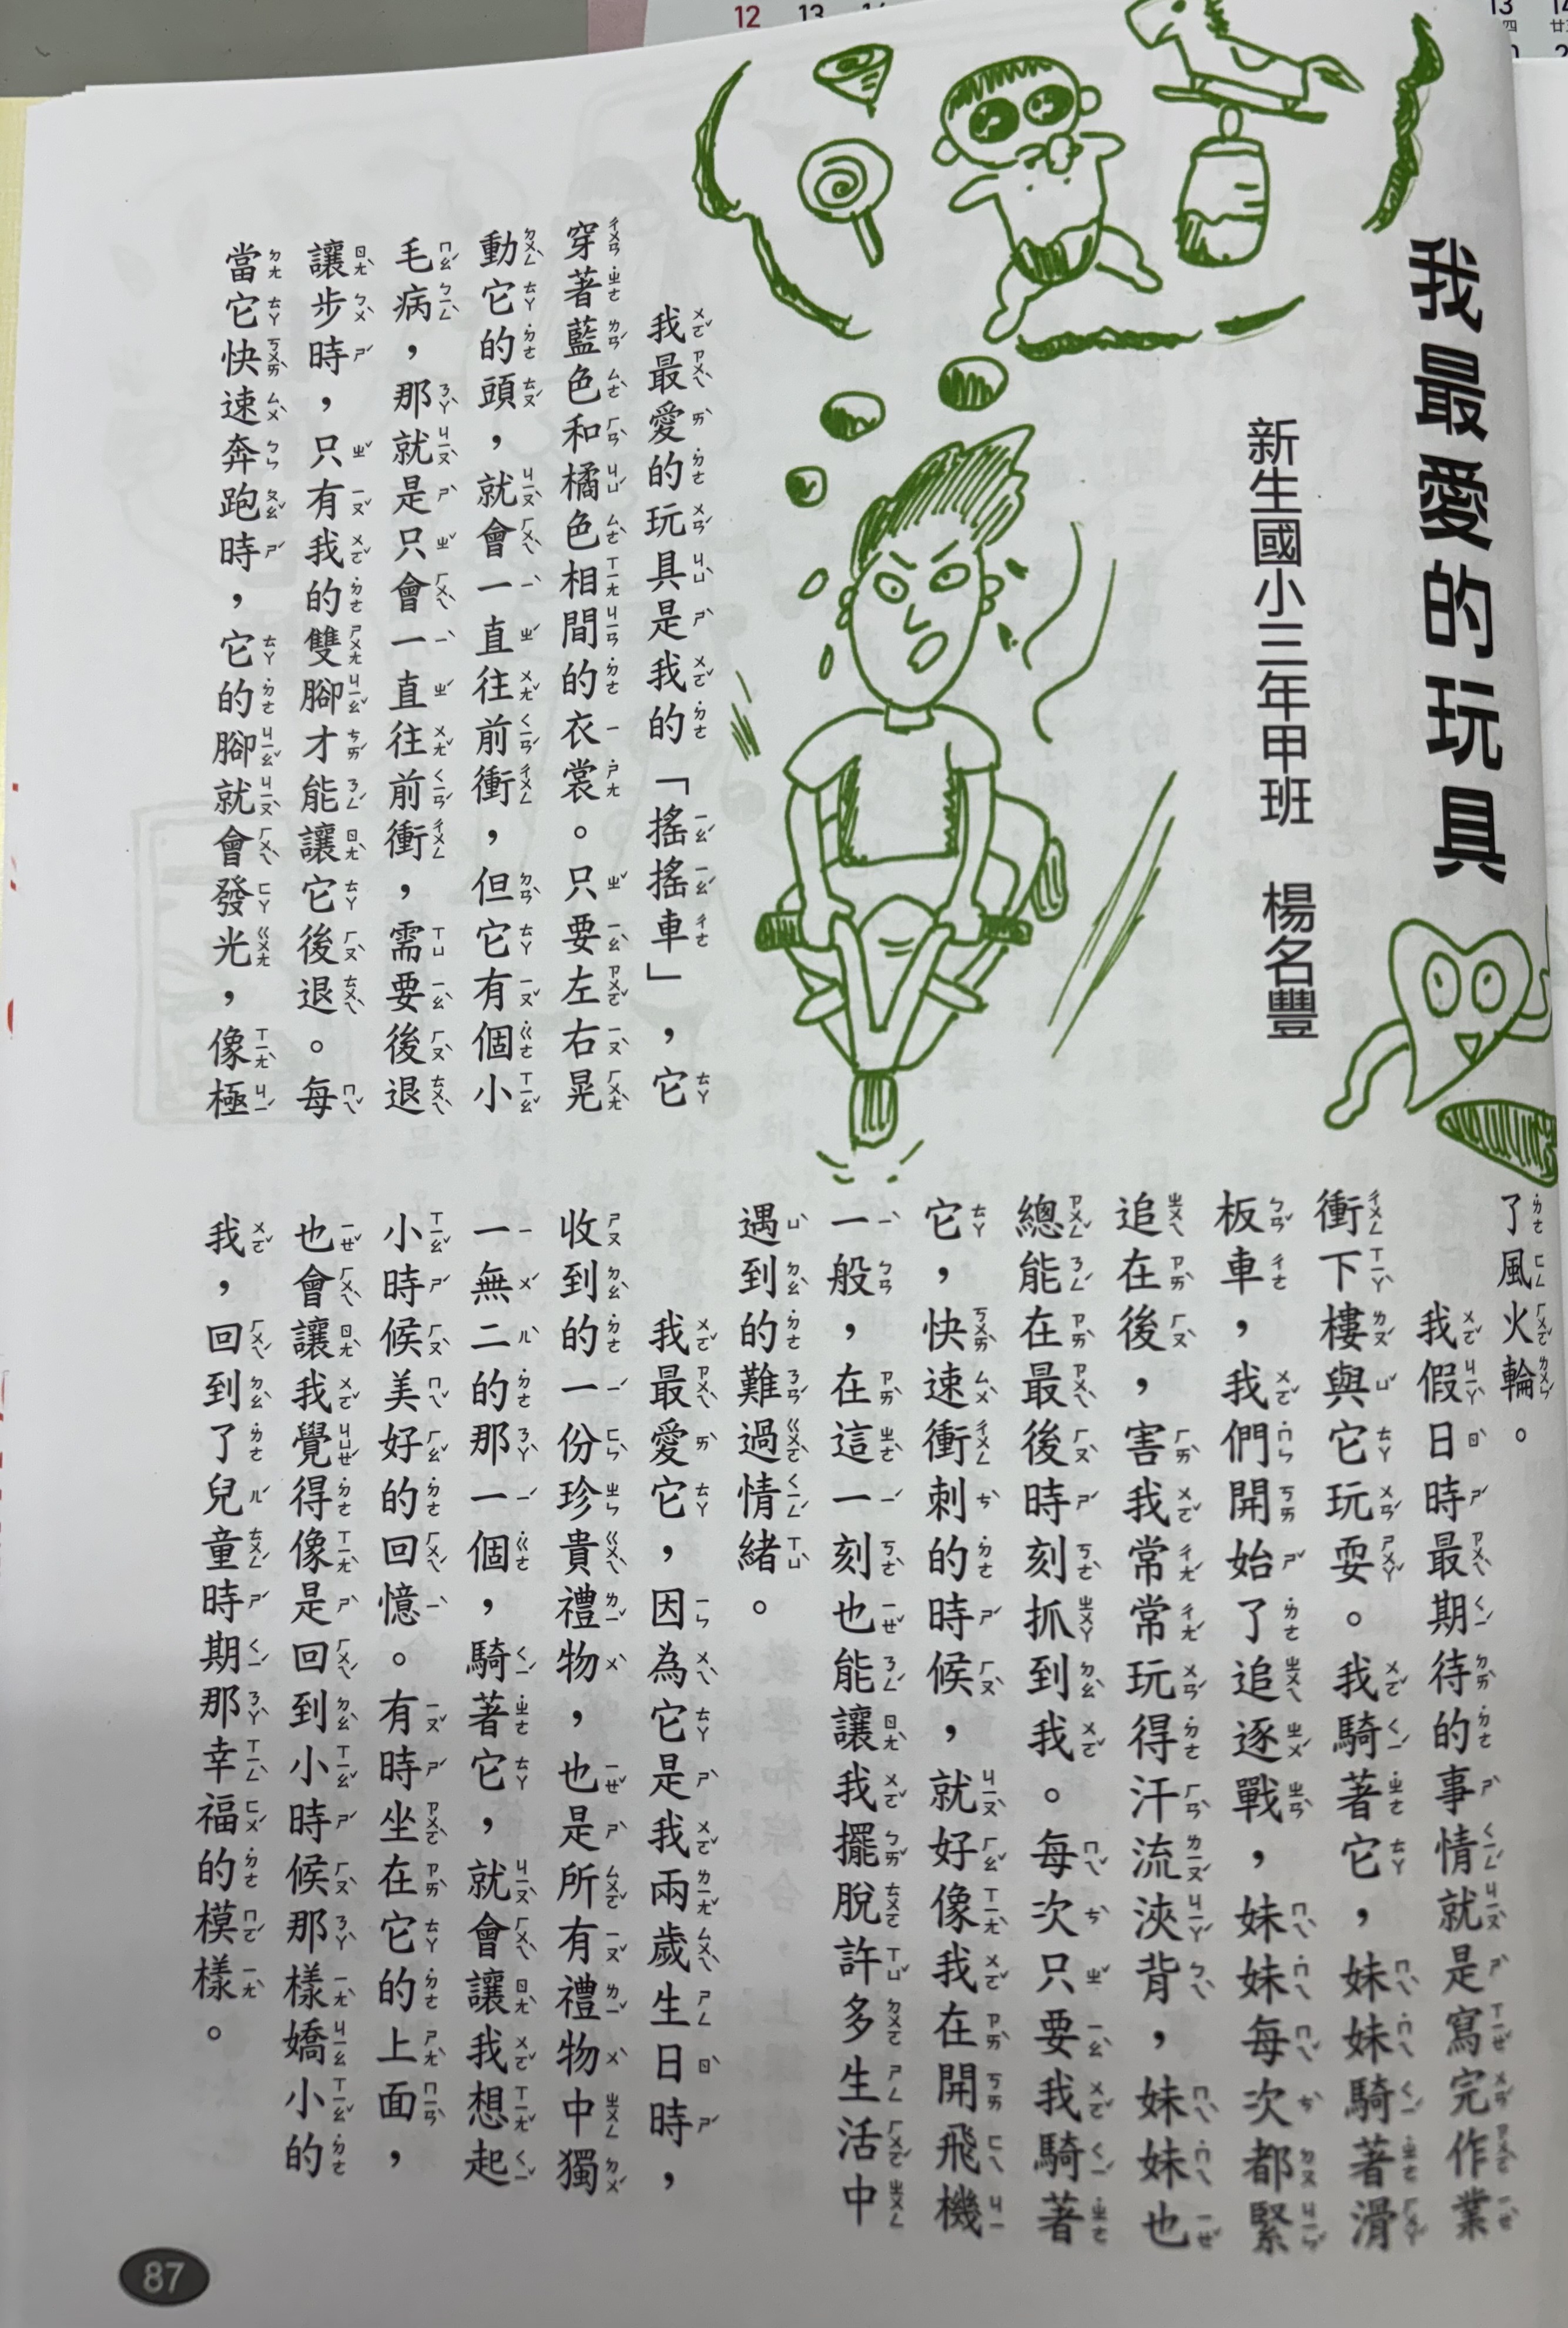 我最愛的玩具
新生國小三年甲班　楊名豐
我最愛的玩具是我的「搖搖車」，它
穿著藍色和橘色相間的衣裳。只要左右晃
動它的頭，就會一直往前衝，但它有個小
毛病，那就是只會一直往前衝，需要後退
讓步時，只有我的雙腳才能讓它後退。每
當它快速奔跑時，它的腳就會發光，像極
了風火輪。
我假日時最期待的事情就是寫完作業
衝下樓與它玩耍。我騎著它，妹妹騎著滑
板車，我們開始了追逐戰，妹妹每次都緊
追在後，害我常常玩得汗流浹背，妹妹也
總能在最後時刻抓到我。每次只要我騎著
它，快速衝刺的時候，就好像我在開飛機
一般，在這一刻也能讓我擺脫許多生活中
遇到的難過情緒。
我最愛它，因為它是我兩歲生日時，
收到的一份珍貴禮物，也是所有禮物中獨
一無二的那一個，騎著它，就會讓我想起
小時候美好的回憶。有時坐在它的上面，
也會讓我覺得像是回到小時候那樣嬌小的
我，回到了兒童時期那幸福的模樣。
87
12 13
13
四